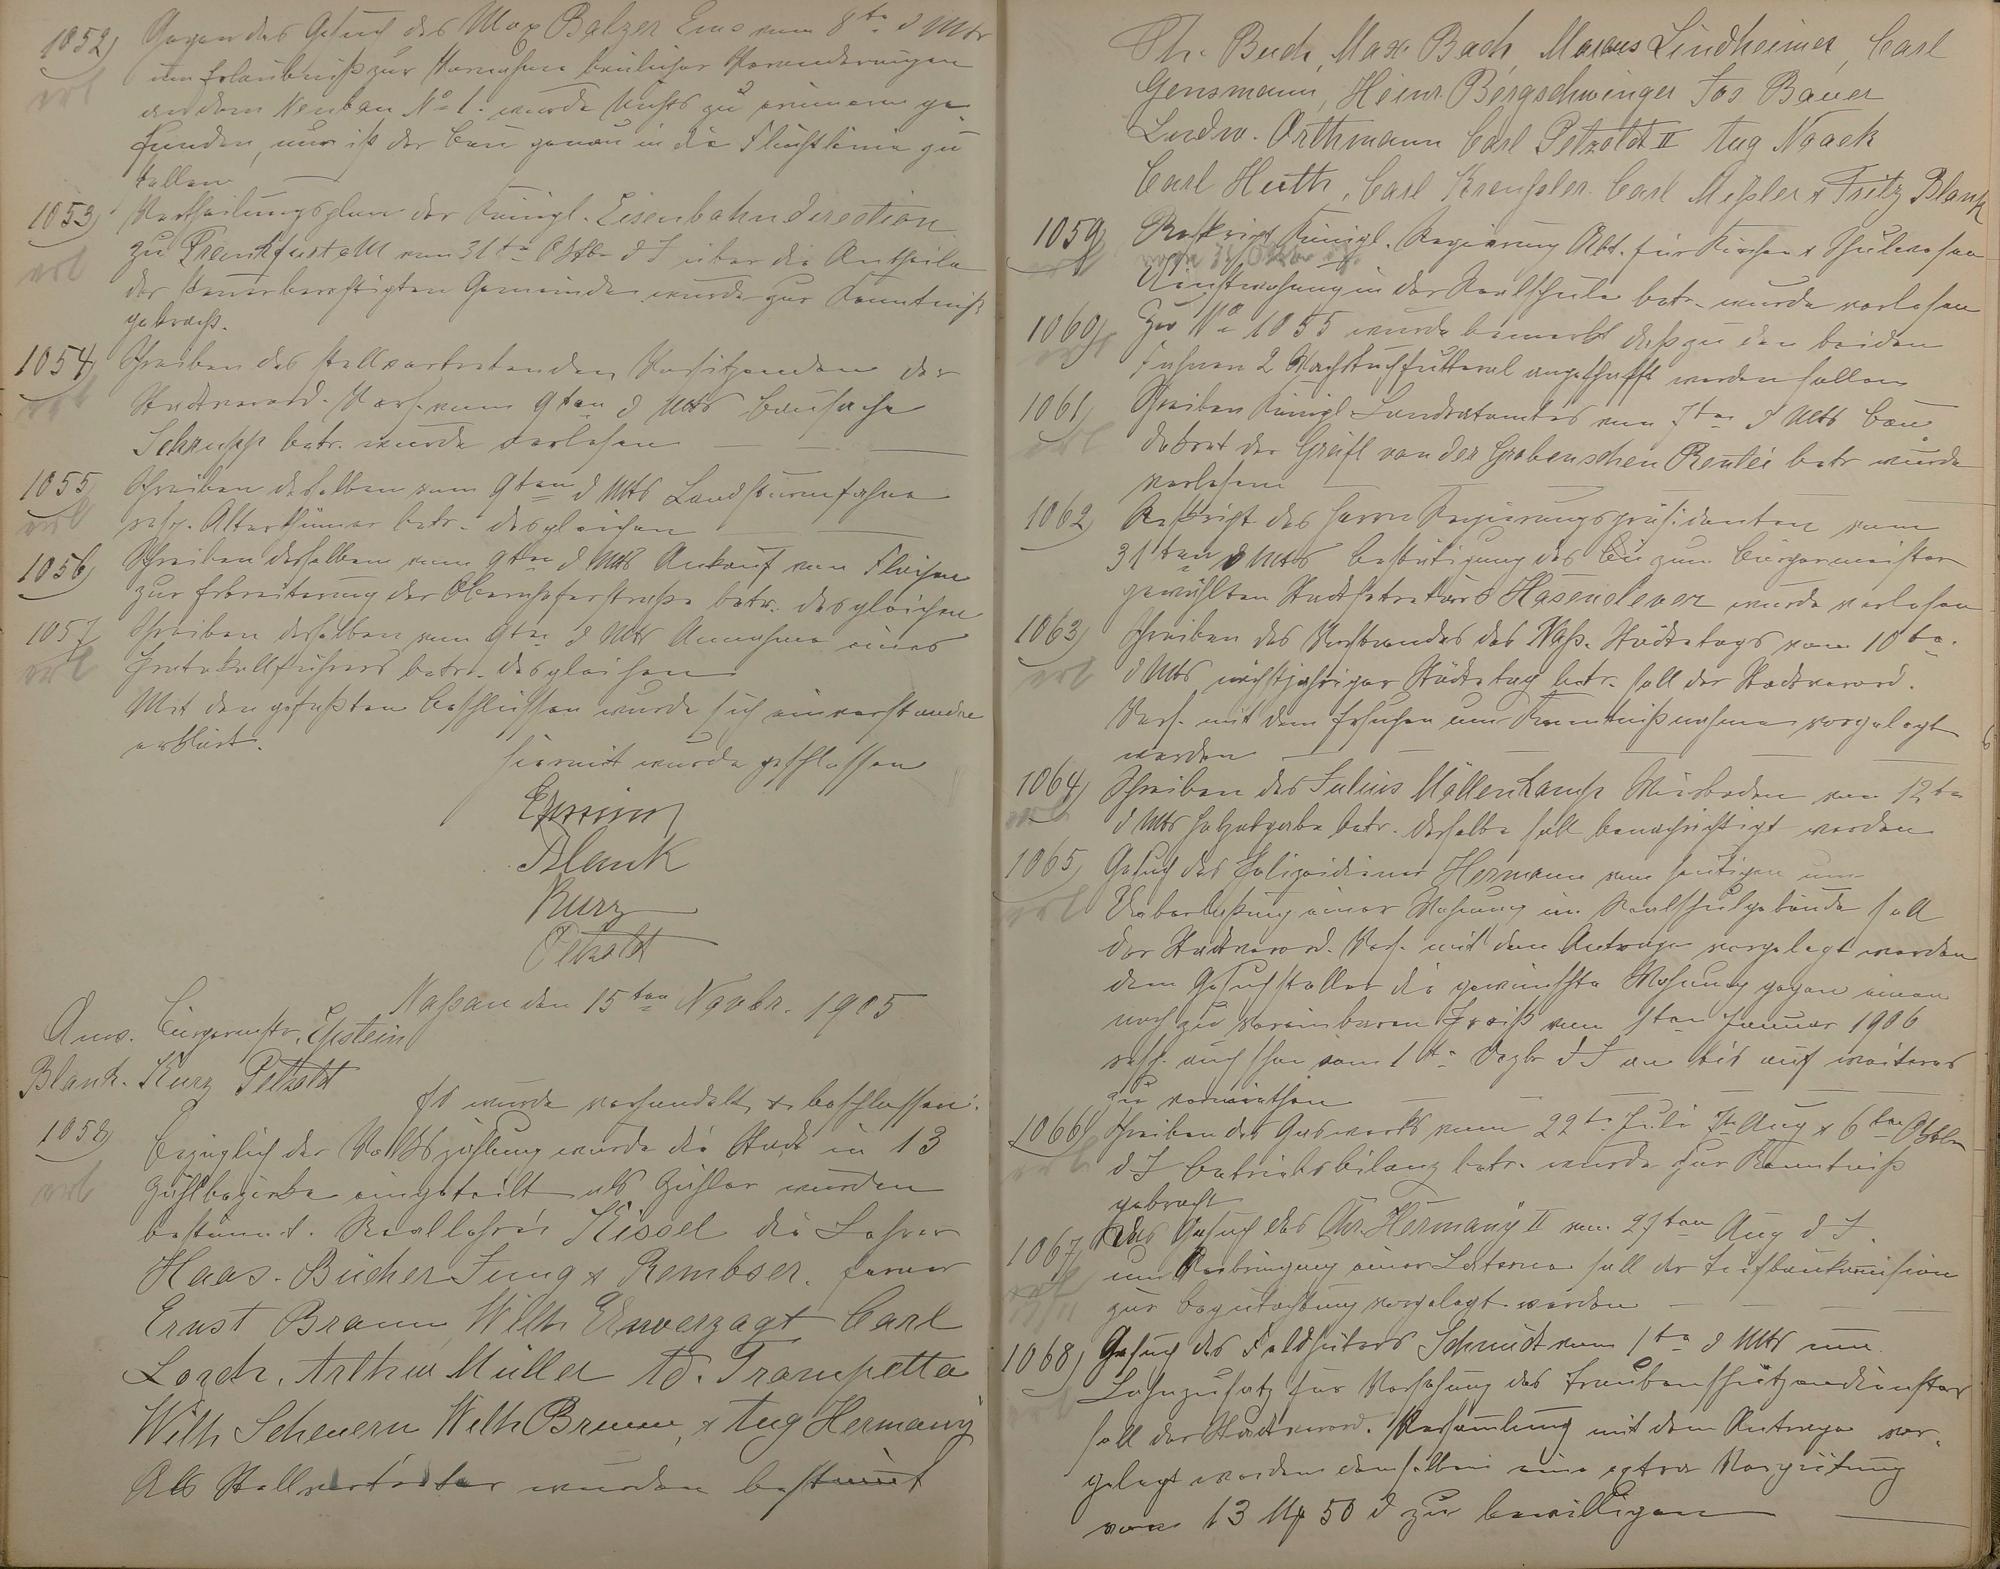 1052) Gegen das Gesuch des Max Balzer Ems vom 8ten d Mts
um Erlaubniß zur Vornahme baulicher Veränderungen
an dem Neubau No 1. wurde Nichts zu erinnern ge-
funden, nur ist der Bau genau in die Fluchtlinie zu
stellen
1053) Vertheilungsplan der Königl. Eisenbahndirection
zu Frankfurt a M vom 31ten Oktbr d J über die Antheile
der steuerberechtigten Gemeinden wurde zur Kenntniß
gebracht.
1054) Schreiben des stellvertretenden Vorsitzenden der
Stadtverord. Vers. vom 9ten d Mts Bausache
Schrupp betr. wurde verlesen
1055) Schreiben desselben vom 9ten d Mts Landsturmfahne
resp. Alterthümer betr. desgleichen
1056) Schreiben desselben vom 9ten d Mts Ankauf von Flächen
zur Erbreiterung der Obernhoferstraße betr. desgleichen
1057) Schreiben desselben vom 9ten d Mts Annahme eines
Protokollführers betr. desgleichen
Mit den gefaßten Beschlüssen wurde sich einverstanden
erklärt.
Hiermit wurde geschlossen
Epstein
Blank
Kurz
Petzoldt
Naßau den 15ten Novbr. 1905
Anw. Bürgermstr. Epstein
Blank. Kurz Petzoldt
Es wurde verhandelt & beschlossen:
1058) Bezüglich der Volkszählung wurde die Stadt in 13
Zählbezirke eingeteilt als Zähler wurden
bestimmt. Reallehrer Kissel die Lehrer
Haas. Bücher Jung & Rembser. ferner
Ernst Braun Wilh Unverzagt Carl
Lorch. Arthur Müller Ad. Trombetta
Wilh Scheuern Wilh Bruun, & Aug Hermany
Als Stellvertreter wurden bestimmt
Th. Buch, Max Bach, Marcus Lindheimer, Carl
Gensmann, Heinr. Bergschwinger Jos Bauer
Ludw. Orthmann Carl Petzoldt II Aug Noack
Carl Huth, Carl Kreußler. Carl Meßler & Fritz Blank
1059) Reskript Königl. Regierung Abt. für Kirchen & Schulwesen
vom 31 Oktbr d J.
in der Realschule betr. wurde verlesen
1060) Zur No 1055 wurde bemerkt daß zu den beiden
Fahnen 2 Wachstuchfutteral angeschafft werden sollen
1061) Schreiben Königl Landratamtes vom 7ten d Mts Bau
der Gräfl von der Grobenschen Rentei betr wurde
verlesen
1062) Reskript des Herrn Regierungspräsidenten vom
31ten d Mts Bestätigung des zum Bürgermeister
gewählten Stadtsekretärs Hasenclever wurde verlesen
1063) Schreiben des Vorstandes des Naß. Städtetags vom 10ten
d Mts nächstjähriger Städtetag betr. soll der Stadtverord.
Vers. mit dem Ersuchen um Kenntnißnahme vorgelegt
werden
1064) Schreiben des Julius Möllenkamp Wiesbaden vom 12ten
d Mts Holzabgabe betr. derselbe soll benachrichtigt werden
1065) Gesuch des Polizeidiener Hermann vom heutigen um
Ueberlaßung einer Wohnung im Realschulgebäude soll
der Stadtverord. Vers. mit dem Antrage vorgelegt werden
dem Gesuchsteller die gewünschte Wohnung gegen einen
noch zu vereinbaren Preiß vom 1ten Januar 1906
resp. auch schon vom 1ten Dezbr d J an bis auf weiteres
zu vermiethen
1066) Schreiben des Gaswerks vom 22ten Juli 7ten Aug & 6ten Oktbr
d J Betriebsbilanz betr. wurde zur Kenntniß
gebracht
1067) Das Gesuch des Chr. Hermany II vom 27ten Aug d J.
um Anbringung einer Laterne soll der Tiefbaukommision
zur Begutachtung vorgelegt werden
1068) Gesuch des Feldhüters Schmidt vom 1ten d Mts um
Lohnzusatz für Versehung des Traubenschützendienstes
soll der Stadtverord. Versammlung mit dem Antrage vor-
gelegt werden demselben eine extra Vergütung
von 13 M 50 d zu bewilligen